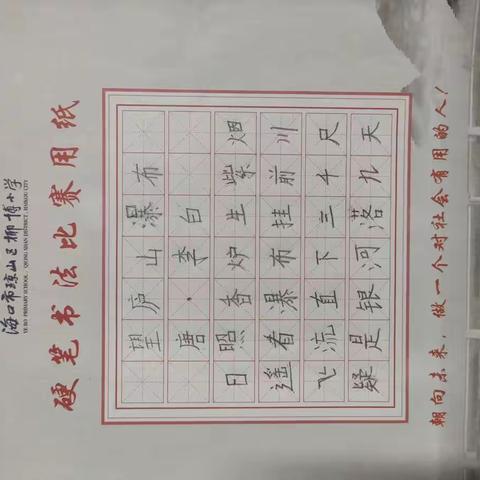 海口市琼山区椰博小学
YE BO PRIMARY SCHOOL, QIONG SHAN DISTRICT, HAIKOU CITY
硬笔书法比赛用纸
望庐山瀑布
唐·李白
日照香炉生紫烟
遥看瀑布挂前川
飞流直下三千尺
疑是银河落九天
朝向未来,做一个对社会有用的人!